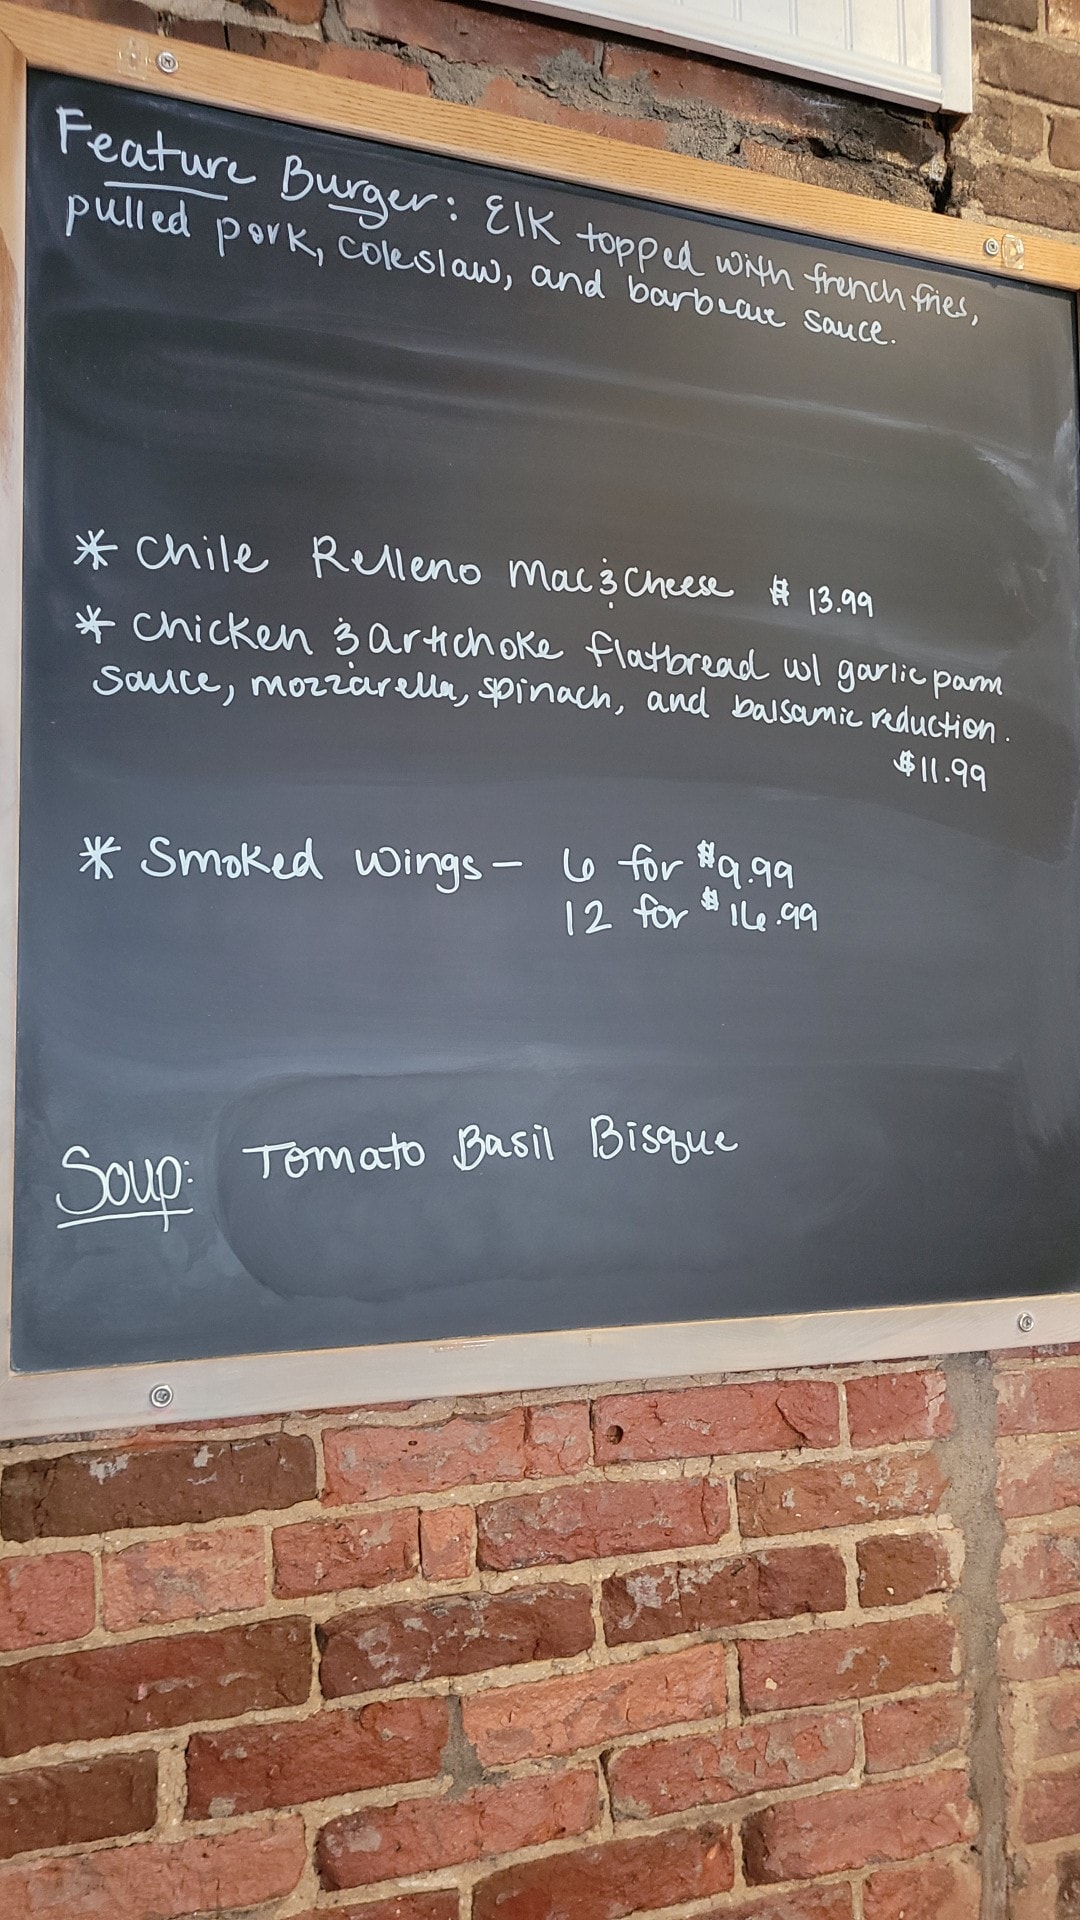 Feature Burger: Elk topped with french fries,
pulled pork, coleslaw, and barbecue sauce.
* Chile Relleno Mac & Cheese $ 13.99
* Chicken & artichoke flatbread w/ garlic parm
sauce, mozzarella, spinach, and balsamic reduction.
$11.99
* Smoked Wings – 6 for $9.99
12 for $16.99
Soup: Tomato Basil Bisque